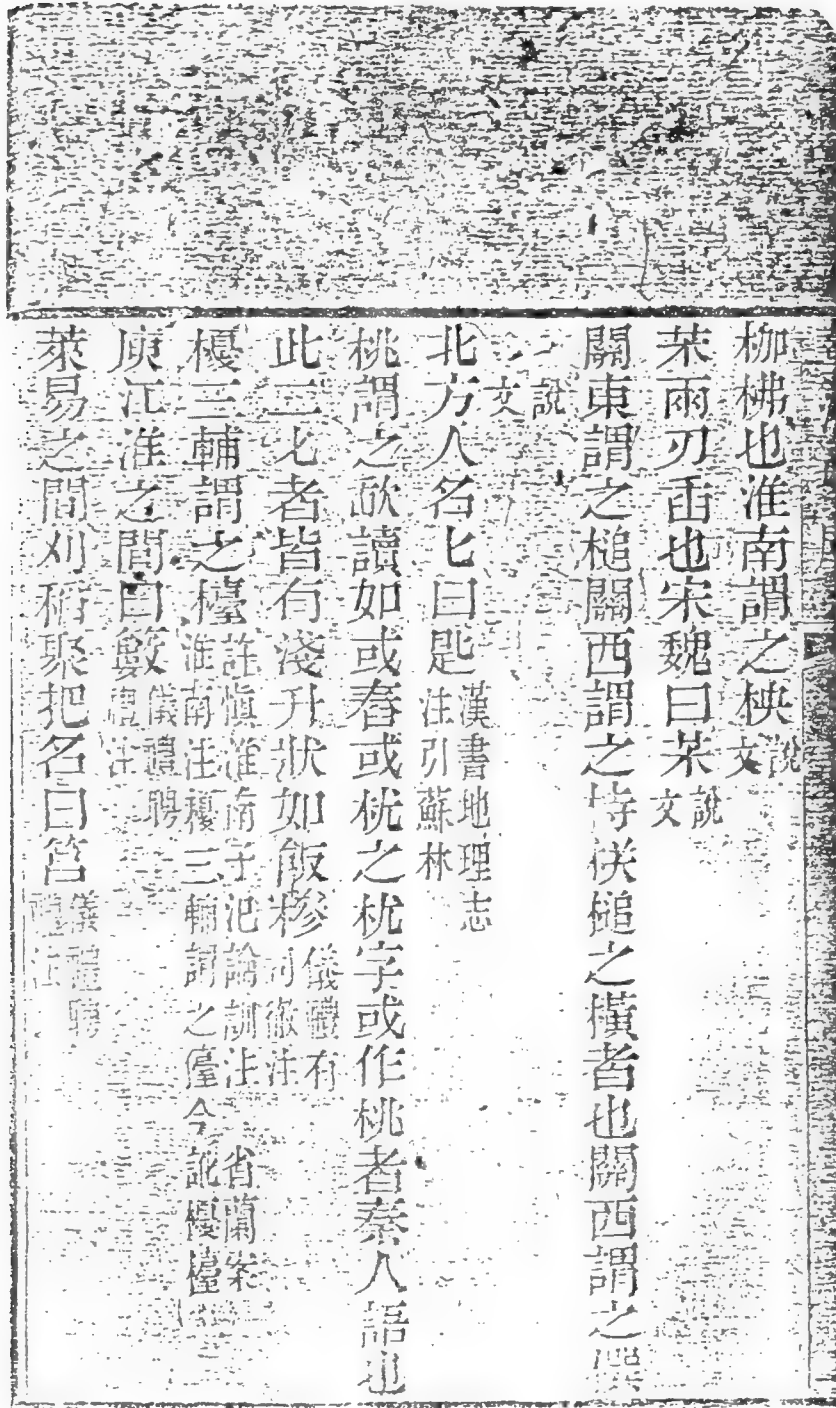 枷柫也淮南謂之柍說文
茉兩刃臿也宋魏曰茉說文
關東謂之槌關西謂之㭙栚槌之橫者也關西謂之㯢
說文
北方人名匕曰匙漢書地理志注引蘇林
桃謂之歃讀如或舂或枕之枕字或作桃者秦人語也
此二匕者皆有淺升狀如飯橾儀禮有司徹注
櫌三輔謂之㯓許慎淮南子氾論訓注 省蘭案淮南注櫌三輔謂之儓今訛櫌㯓
庾江淮之間曰籔儀禮聘禮注
萊易之間刈稻聚把名曰筥儀禮聘禮注